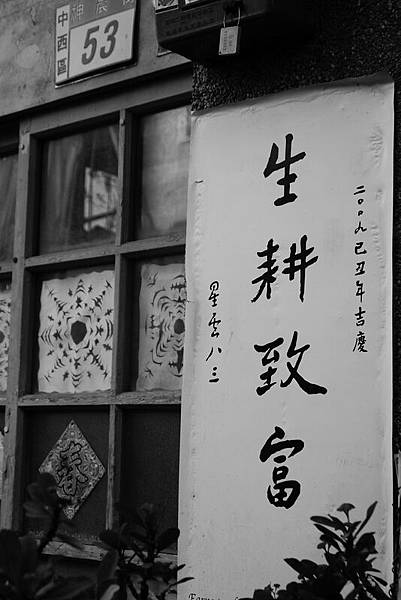 神農街
中西區
53
生耕致富
二〇〇九己丑年吉慶
星雲八三
春